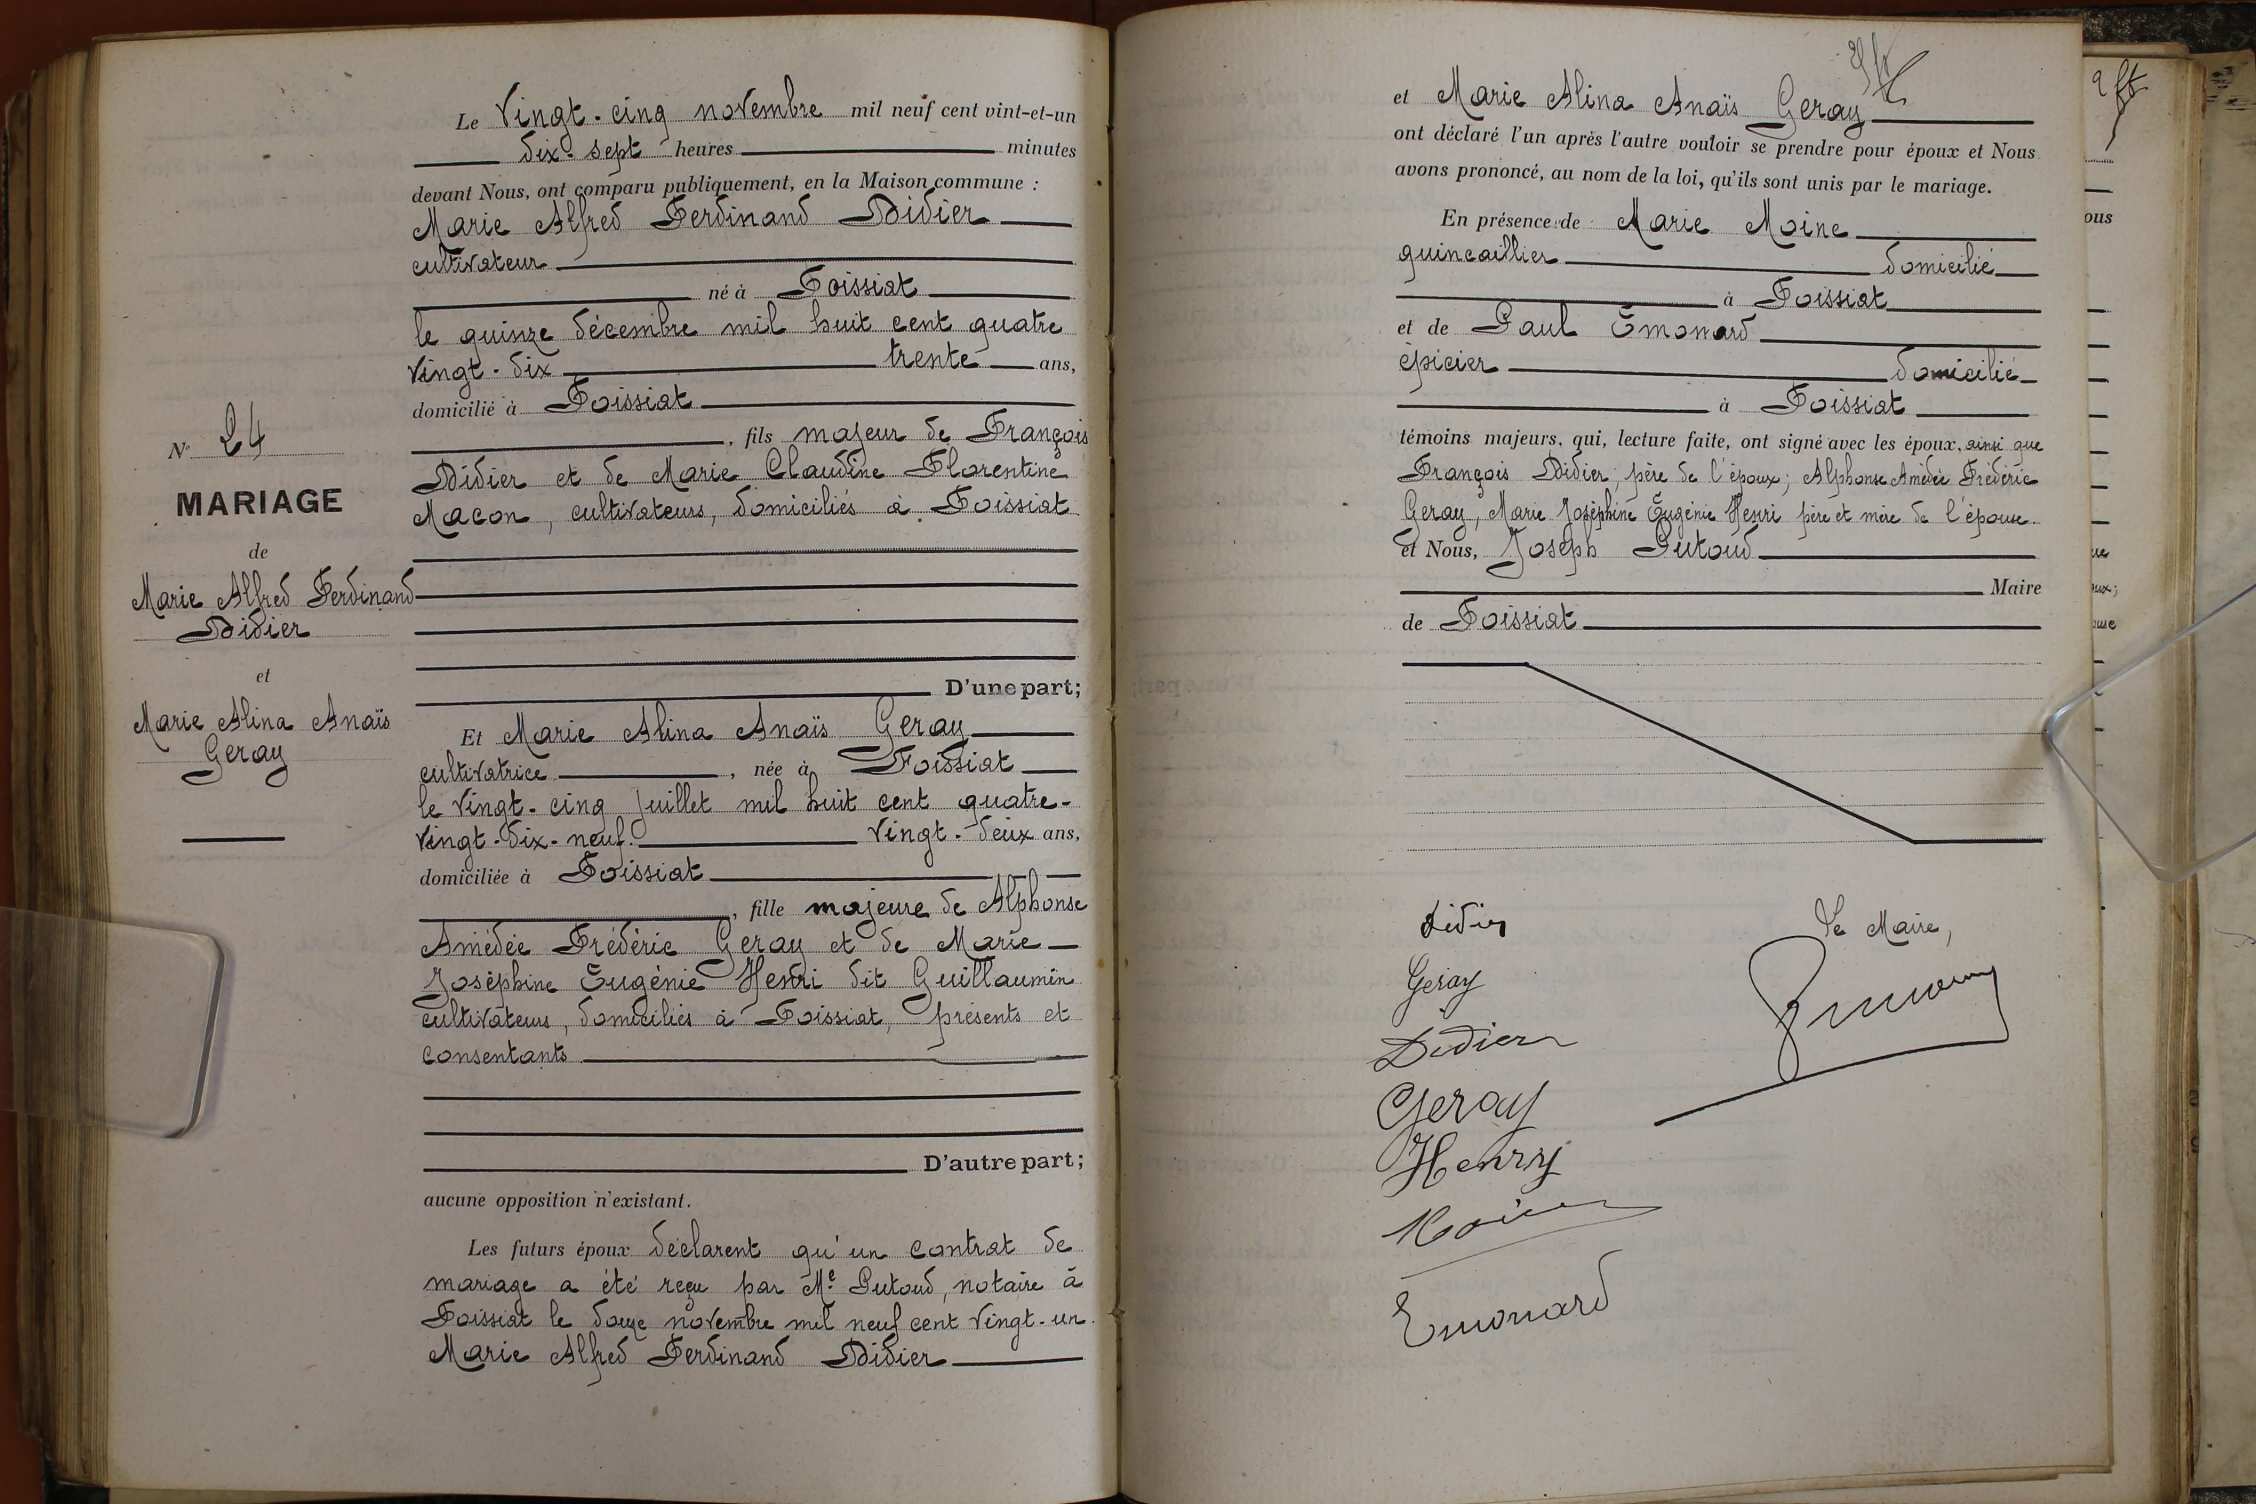 N° 24
MARIAGE
de
Marie Alfred Ferdinand
Didier
et
Marie Alina Anaïs
Geray
Le Vingt-cinq novembre mil neuf cent vint-et-un
dix-sept heures minutes
devant Nous, ont comparu publiquement, en la Maison commune :
Marie Alfred Ferdinand Didier
cultivateur
né à Foissiat
le quinze décembre mil huit cent quatre
vingt-dix trente ans,
domicilié à Foissiat
, fils majeur de François
Didier et de Marie Claudine Florentine
Macon, cultivateurs, domiciliés à Foissiat
D'une part;
Et Marie Alina Anaïs Geray
cultivatrice , née à Foissiat
le vingt-cinq juillet mil huit cent quatre-
vingt-dix-neuf. vingt-deux ans,
domiciliée à Foissiat
, fille majeure de Alphonse
Amédée Frédéric Geray et de Marie
Joséphine Eugénie Henri dit Guillaumin
cultivateurs, domiciliés à Foissiat, présents et
consentants
D'autre part;
aucune opposition n'existant.
Les futurs époux déclarent qu'un contrat de
mariage a été reçu par Me Putoud, notaire à
Foissiat le douze novembre mil neuf cent vingt-un.
Marie Alfred Ferdinand Didier
et Marie Alina Anaïs Geray
ont déclaré l'un après l'autre vouloir se prendre pour époux et Nous
avons prononcé, au nom de la loi, qu'ils sont unis par le mariage.
En présence de Marie Moine
quincaillier domicilié
à Foissiat
et de Paul Emonard
épicier domicilié
à Foissiat
témoins majeurs, qui, lecture faite, ont signé avec les époux, ainsi que
François Didier, père de l'époux; Alphonse Amédée Frédéric
Geray, Marie Joséphine Eugénie Henri père et mère de l'épouse.
et Nous, Joseph Putoud
Maire
de Foissiat
Didier
Geray
Didier
Geray
Henry
Moine
Emonard
Le Maire,
ous